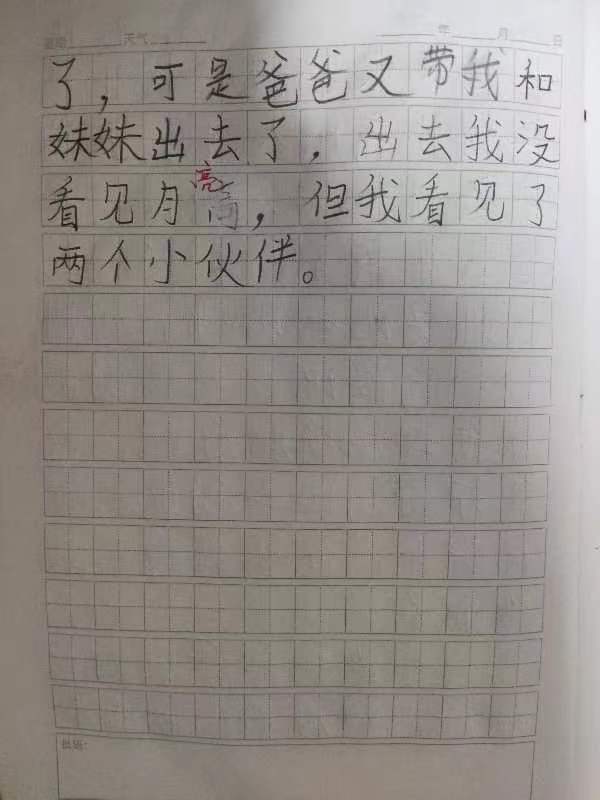 天气 年 月 日
了，可是爸爸又带我和
妹妹出去了，出去我没
亮
看见月高，但我看见了
两个小伙伴。